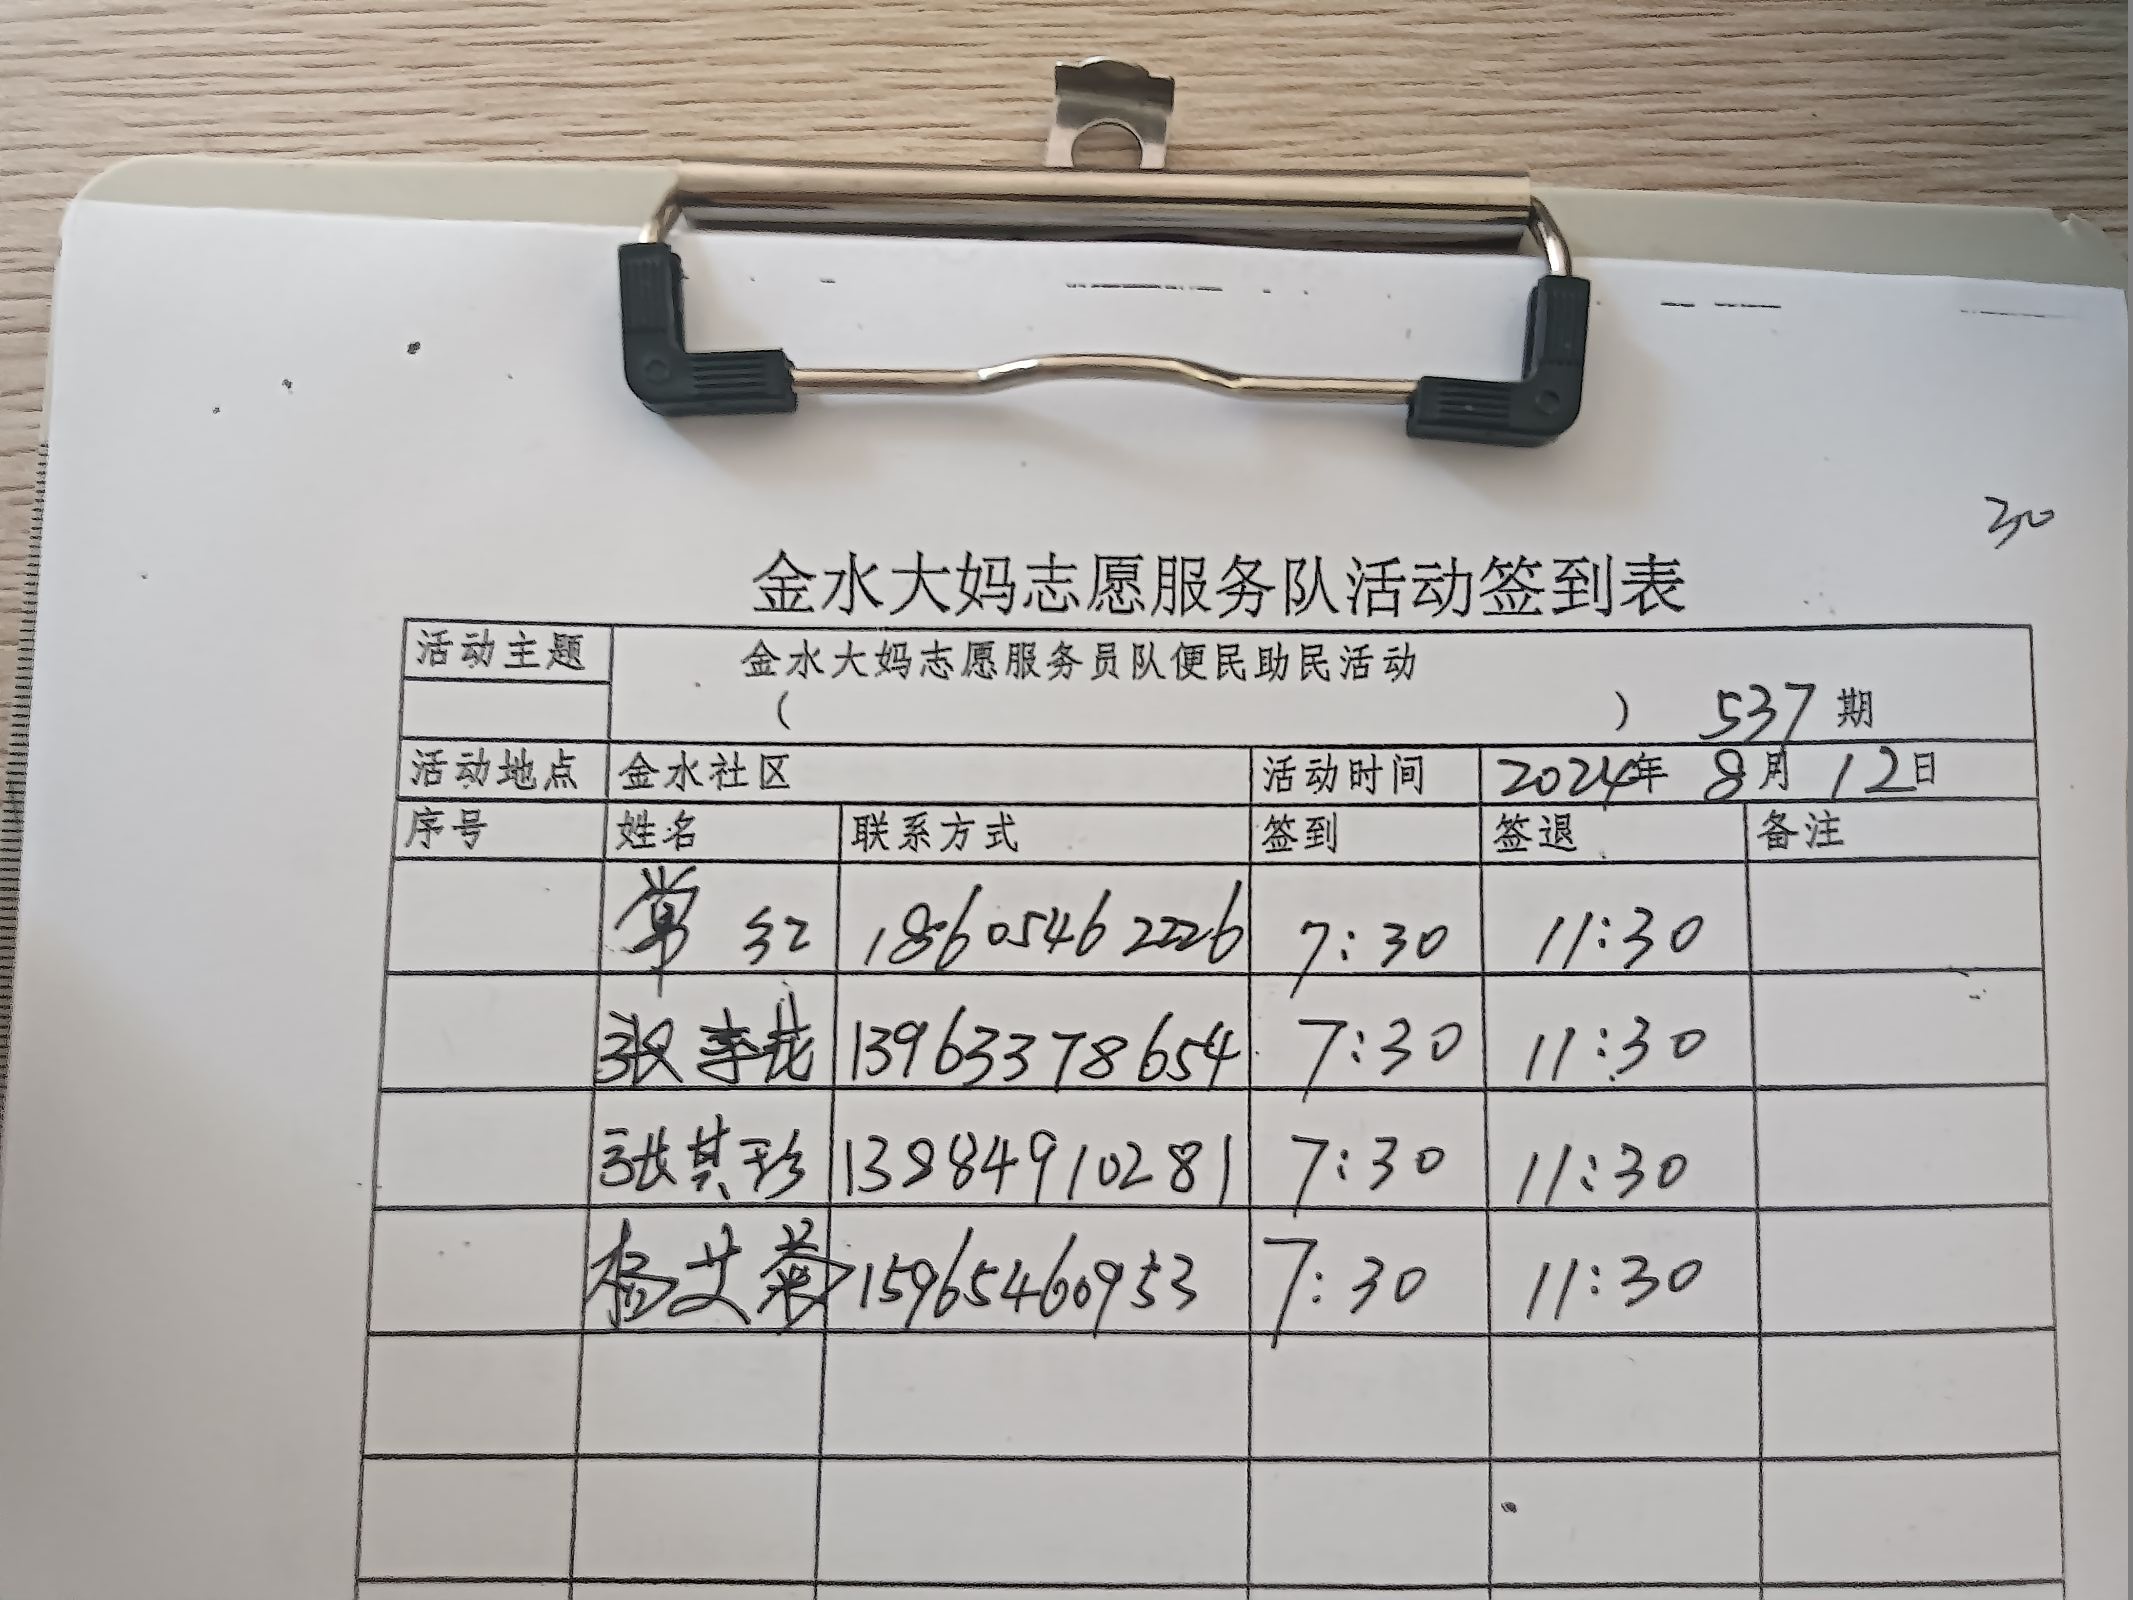 30
金水大妈志愿服务队活动签到表
活动主题 金水大妈志愿服务员队便民助民活动
( ) 537期
活动地点 金水社区 活动时间 2024年 8月 12日
序号 姓名 联系方式 签到 签退 备注
常红 18605462226 7:30 11:30
张 13963378654 7:30 11:30
张其珍 13884910281 7:30 11:30
杨艾菊 15965460953 7:30 11:30